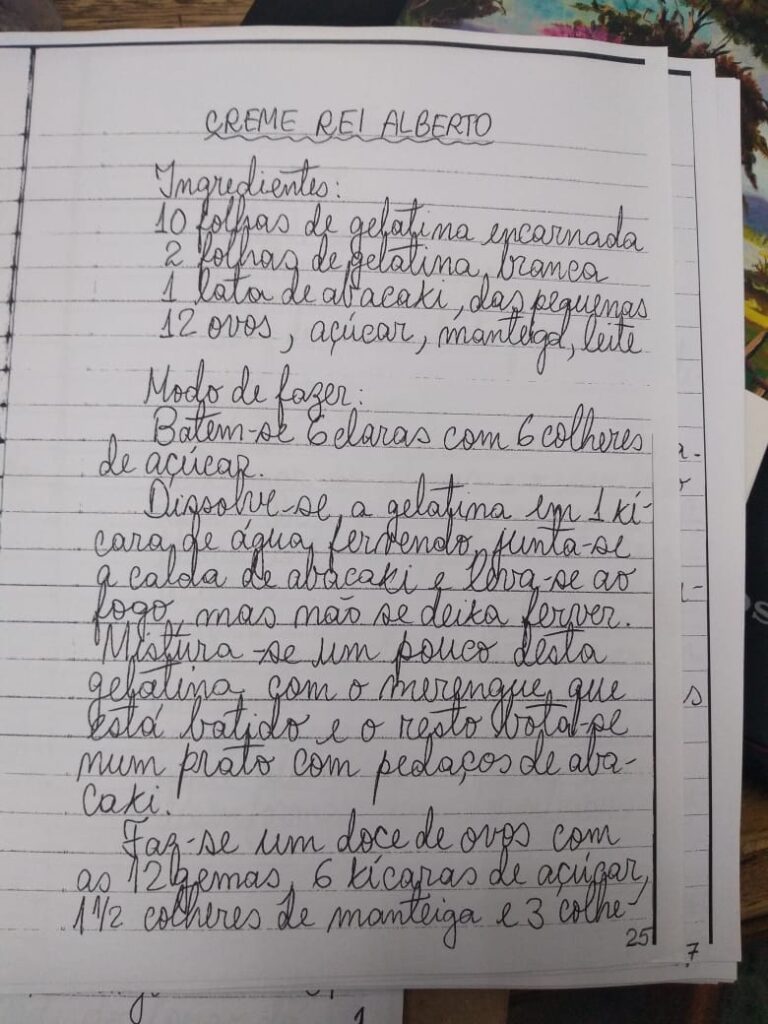 CREME REI ALBERTO
Ingredientes:
10 folhas de gelatina encarnada
2 folhas de gelatina branca
1 lata de abacaxi, das pequenas
12 ovos, açúcar, manteiga, leite
Modo de fazer:
Batem-se 6 claras com 6 colheres
de açúcar.
Dissolve-se a gelatina em 1 xí-
cara de água fervendo, junta-se
a calda de abacaxi e leva-se ao
fogo, mas não se deixa ferver.
Mistura-se um pouco desta
gelatina com o merengue que
está batido e o resto bota-se
num prato com pedaços de aba-
caxi.
Faz-se um doce de ovos com
as 12 gemas, 6 xícaras de açúcar,
1 1/2 colheres de manteiga e 3 colhe-
25
7